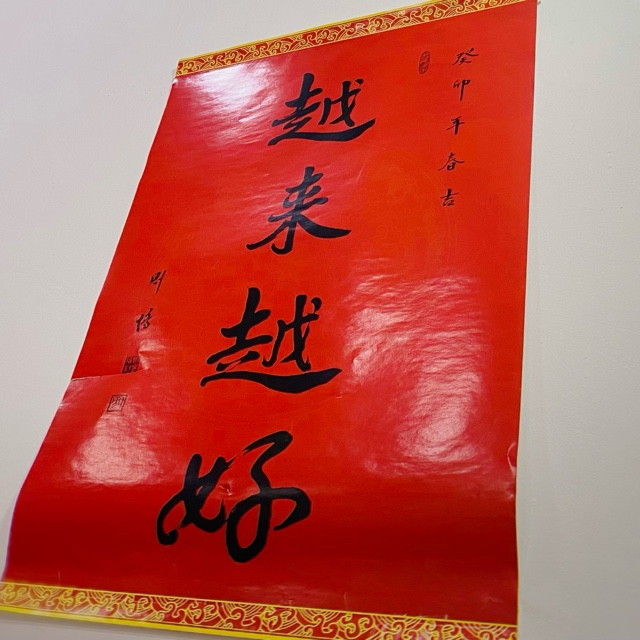 癸卯年春吉
越来越好